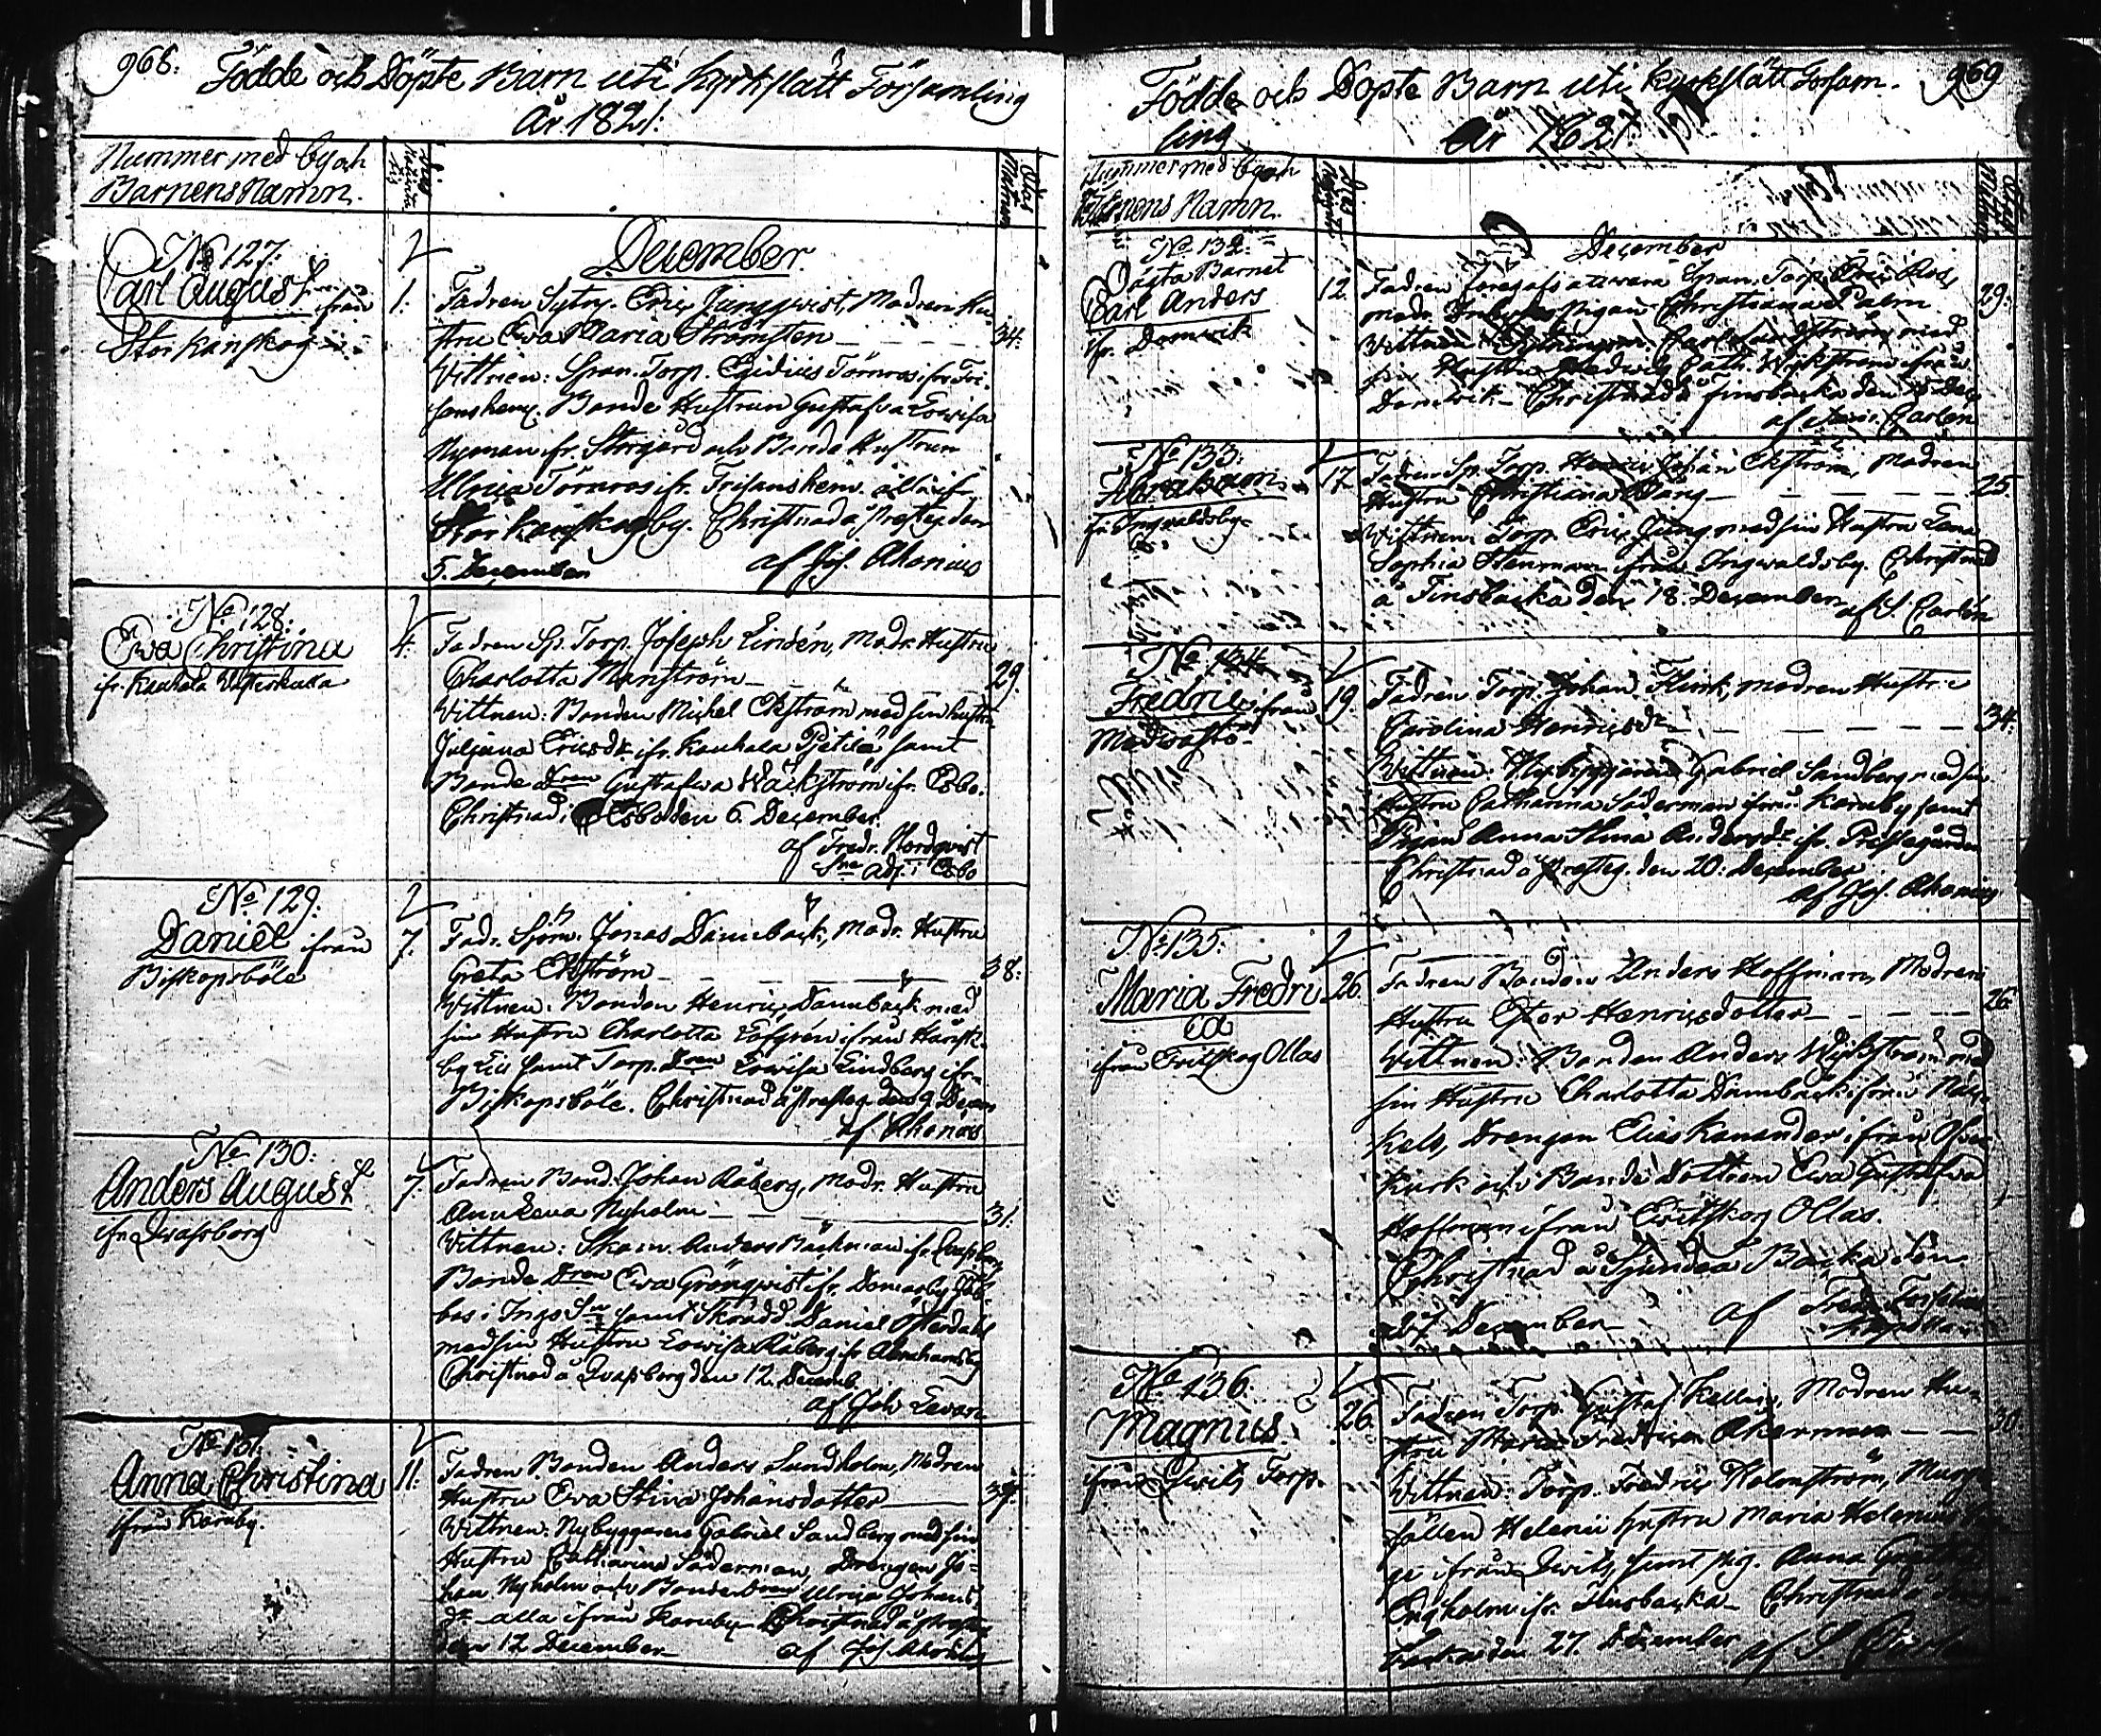 968.
Födde och Döpte Barn uti Kyrkslätt Församling
År 1821.
Nummer med Byoch
Barnens Namn.
December
No 127.
Carl August ifrån
Stor Kanskog
1.
Fadren Sytn. Eric Ljungqvist, Modren Hu-
stru Ewa Maria Strömsten
34.
Vittnen: Span. Torp. Egidius Törnros ifr. Fri-
sans hem. Bonde Hustrun Gustafva Lowisa
Nyman ifr. Storgård och Bonde Hustrun
Ulrica Törnros ifr. Frisans hem. alla if.
Stor Kanskog by. Christnad å Presteg. den
5. December af Jos. Ahonius
No 128.
Ewa Christina
ifr. Kauhala
4.
Fadren Sp. Torp. Joseph Lindén, Modr. Hustru
Charlotta Manström
29.
Vittnen: Bonden Michel Ekström med sin hustru
Juljana Ericsdr. ifr. Kauhala Pjetilä samt
Bonde Dren Gustafwa Wäckström ifr. Esbo.
Christnad i Esbo den 6. December
af Fredr. Nordqvist
Sne Adj. i Esbo
No 129.
Daniel ifrån
Biskopsböle
7.
Fadr. Sjöm. Jonas Dannbäck, Modr. Hustru
Greta Ekström
38.
Vittnen. Bonden Henric Dannbäck med
sin Hustru Charlotta Löfgrén ifrån
by samt Torp. Dren Lowisa Lindberg ifr.
Biskopsböle. Christnad å Presteg. den 9 Decem
af Ahonius
No 130.
Anders August
ifr. Qvafsborg
7.
Fadren Bond. Johan Råberg, Modr. Hustru
Anna Lena Nyholm
31.
Vittnen: Skom. Anders Bäckman ifr. Qvafsborg
Bonde Dren Ewa Grönqvist ifr. Domarby
bas i Ingo Sn samt Skrädd. Daniel Österdahl
med sin Hustru Lowisa Råberg ifr. Abrahamsby
Christnad å Qvafsborg den 12. Decemb.
af Joh. Levan
No 131.
Anna Christina
ifrån Karuby.
11.
Fadren Bonden Anders Lundholm, Modren
Hustru Ewa Stina Johansdotter
39.
Vittnen: Nybyggaren Gabriel Sandberg med sin
Hustru Catharina Söderman, Drengen Jo-
han Nyholm och Bonde Dren Ulrica Johans
dr. alla ifrån Karuby. Christnad å Presteg.
den 12 December af Jos. Ahonius
969
Födde och Döpte Barn uti Kyrkslätt Försam-
ling År 1821.
Nummer med Byoch
Barnens Namn.
December
No 132.
Oägta Barnet
Carl Anders
ifr. Danwik
12.
Fadren föregafs att wara Span. Torp. Eric Ros,
modr. Pigan Christiana Palm
29.
Vittnen med
sin Hustru Hedwig Cath. Wikström ifrån
Danwik. Christnad å Finsbacka den Dec.
af Carlén
No 133.
Abraham
fr. Ingwaldsby
17.
Fadren Sp. Torp. Johan Ekström, Modren
Hustru Christiana Bång
25.
Vittnen Torp. Eric Ljung med sin Hustru Lena
Sophia Stenman ifrån Ingwaldsby. Christnad
å Finsbacka den 18. December af S. Carlén
No 134.
Fredric ifrån
Medwastö
19
Fadren Torp. Johan Flink, modren Hustru
Carolina Henricsdr.
34.
Vittnen: Nybyggaren Gabriel Sandberg med sin
Hustru Catharina Söderman ifrån Karuby samt
Pigan Anna Stina Andersdr. ifr. Prestegården
Christnad å Presteg. den 20. December
af Jos. Ahonius
No 135.
Maria Fredri
ca
ifrån Evitskog Ollas
26.
Fadren Bonden Anders Hoffman, Modren
Hustru Ester Henricsdotter
26
Vittnen: Bonden Anders Wikström med
sin Hustru Charlotta Dannbäck ifrån
Drengen Elias Kanander ifrån
och Bonde Dottren Ewa Gustafva
Hoffman ifrån Evitskog Ollas.
Christnad å Sjundeå Backa den
27 December af Fredr.
No 136.
Magnus.
ifrån Qwits Torp.
26.
Fadren Torp. Gustaf Kellin, Modren Hu-
stru Maria Fredrica Åkerman
30.
Vittnen: Torp. Fredric Holmström,
Helenii hustru Maria Helenius
ifrån Qwits, samt pig. Anna Greta
Engholm ifr. Finsbacka. Christnad å Fins-
backa den 27. December af S. Carlén